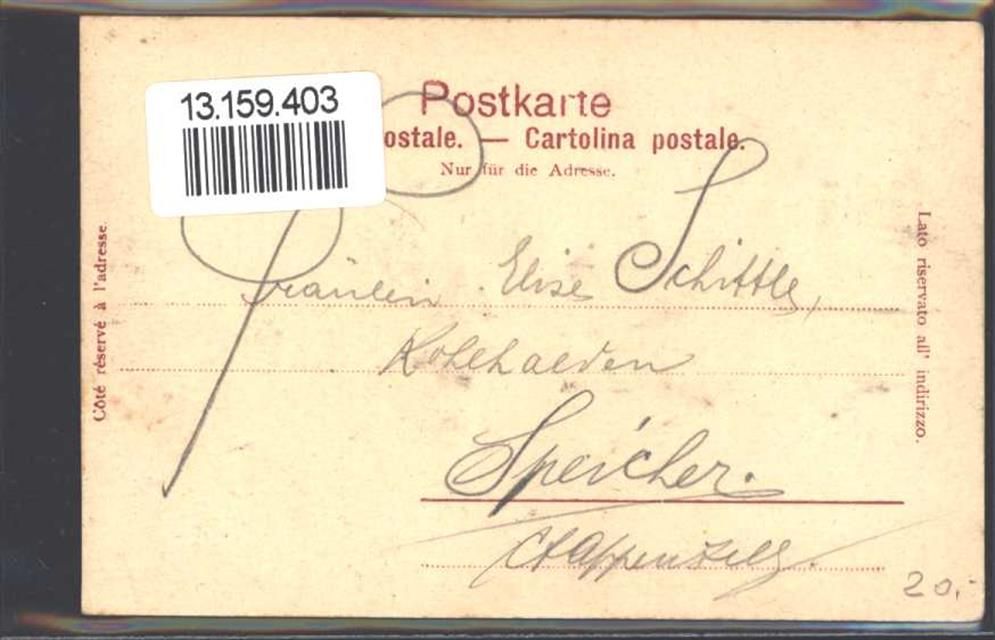 13.159.403
Postkarte
ostale. — Cartolina postale.
Nur für die Adresse.
Côté réservé à l'adresse.
Lato riservato all' indirizzo.
Fräulein Elise Schittle,
Kohlhalden
Speicher.
Ct Appenzell.
20.-